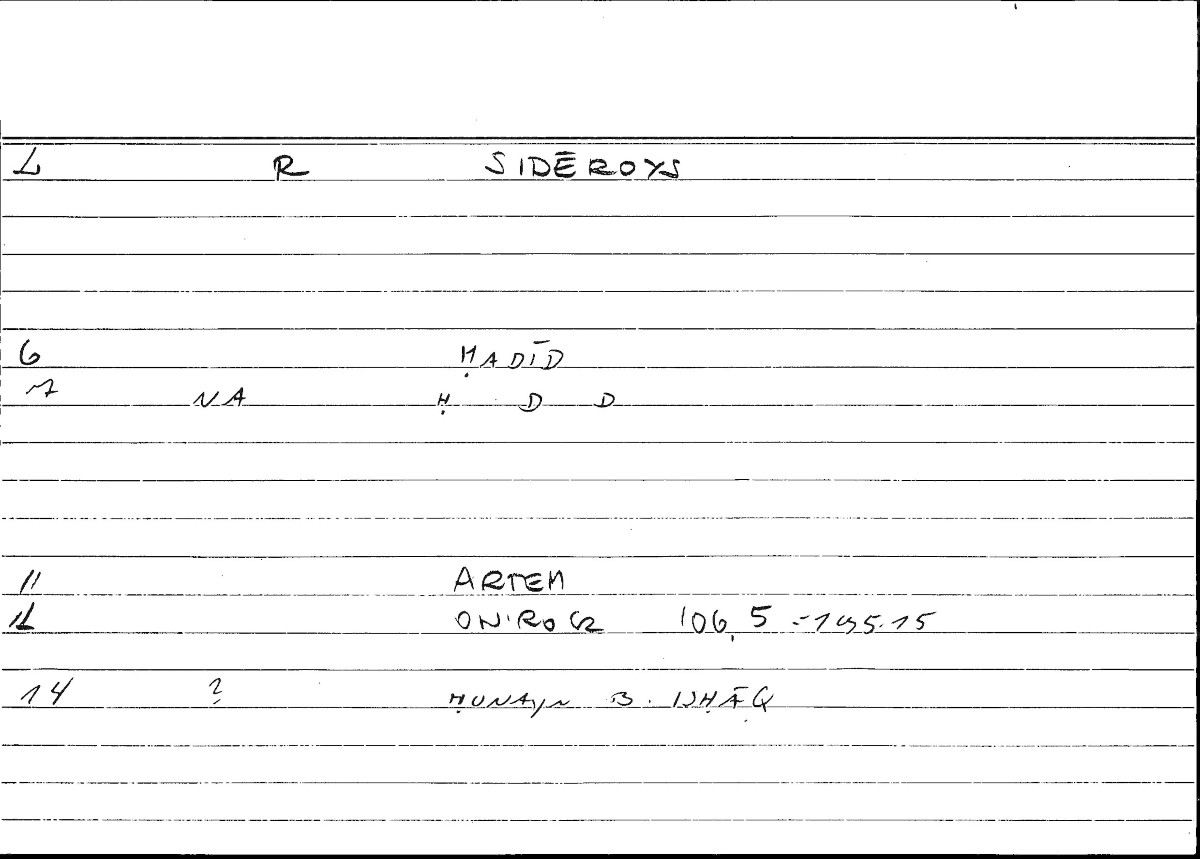 1 R SIDĒROYS
6 ḤADĪD
7 NA Ḥ D D
11 ARTEM
12 ONIROCR 106,5 = 195.15
14 ? ḤUNAYN B. ISḤĀQ